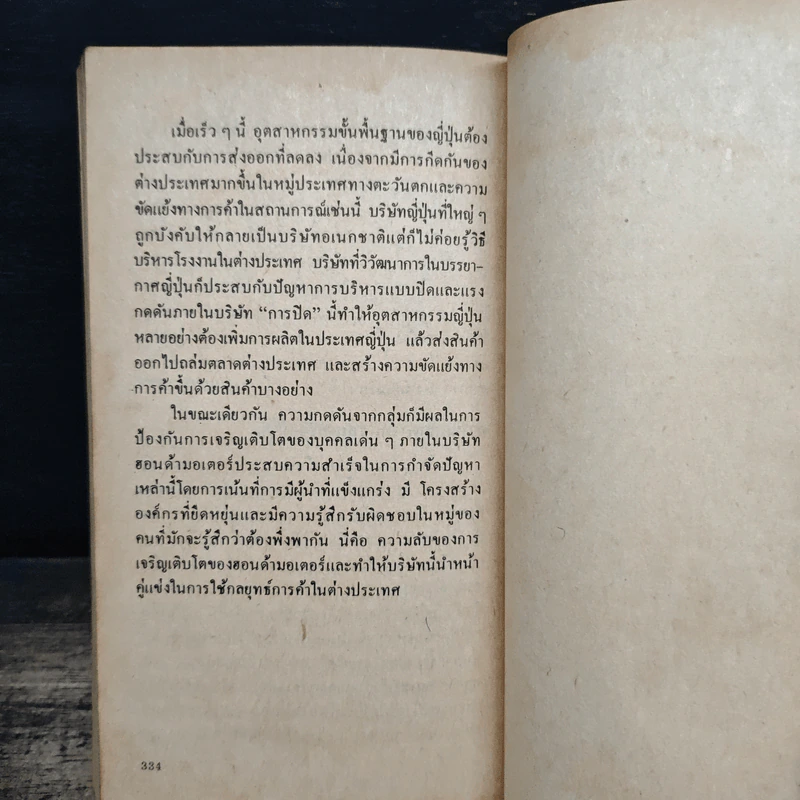 เมื่อเร็ว ๆ นี้ อุตสาหกรรมขั้นพื้นฐานของญี่ปุ่นต้อง
ประสบกับการส่งออกที่ลดลง เนื่องจากมีการกีดกันของ
ต่างประเทศมากขึ้นในหมู่ประเทศทางตะวันตกและความ
ขัดแย้งทางการค้าในสถานการณ์เช่นนี้ บริษัทญี่ปุ่นที่ใหญ่ ๆ
ถูกบังคับให้กลายเป็นบริษัทอเนกชาติแต่ก็ไม่ค่อยรู้วิธี
บริหารโรงงานในต่างประเทศ บริษัทที่วิวัฒนาการในบรรยา-
กาศญี่ปุ่นก็ประสบกับปัญหาการบริหารแบบปิดและแรง
กดดันภายในบริษัท “การปิด” นี้ทำให้อุตสาหกรรมญี่ปุ่น
หลายอย่างต้องเพิ่มการผลิตในประเทศญี่ปุ่น แล้วส่งสินค้า
ออกไปถล่มตลาดต่างประเทศ และสร้างความขัดแย้งทาง
การค้าขึ้นด้วยสินค้าบางอย่าง
ในขณะเดียวกัน ความกดดันจากกลุ่มก็มีผลในการ
ป้องกันการเจริญเติบโตของบุคคลเด่น ๆ ภายในบริษัท
ฮอนด้ามอเตอร์ประสบความสำเร็จในการกำจัดปัญหา
เหล่านี้โดยการเน้นที่การมีผู้นำที่แข็งแกร่ง มี โครงสร้าง
องค์กรที่ยืดหยุ่นและมีความรู้สึกรับผิดชอบในหมู่ของ
คนที่มักจะรู้สึกว่าต้องพึ่งพากัน นี่คือ ความลับของการ
เจริญเติบโตของฮอนด้ามอเตอร์และทำให้บริษัทนี้นำหน้า
คู่แข่งในการใช้กลยุทธ์การค้าในต่างประเทศ
334